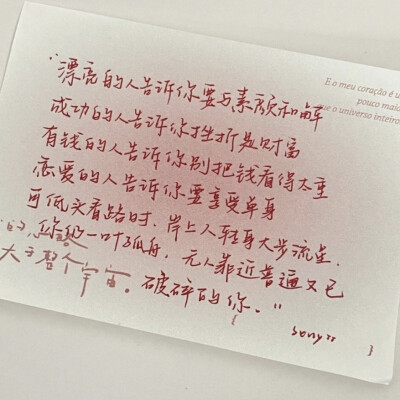 E o meu coração é u
pouco maio
ue o universo inteiro
"漂亮的人告诉你要与素颜和解
成功的人告诉你挫折是财富
有钱的人告诉你别把钱看得太重
恋爱的人告诉你要享受单身
可低头看路时，岸上人轻身大步流星，
你仍一叶孤舟，无人靠近普遍又已
大于整个宇宙。破碎的你。"